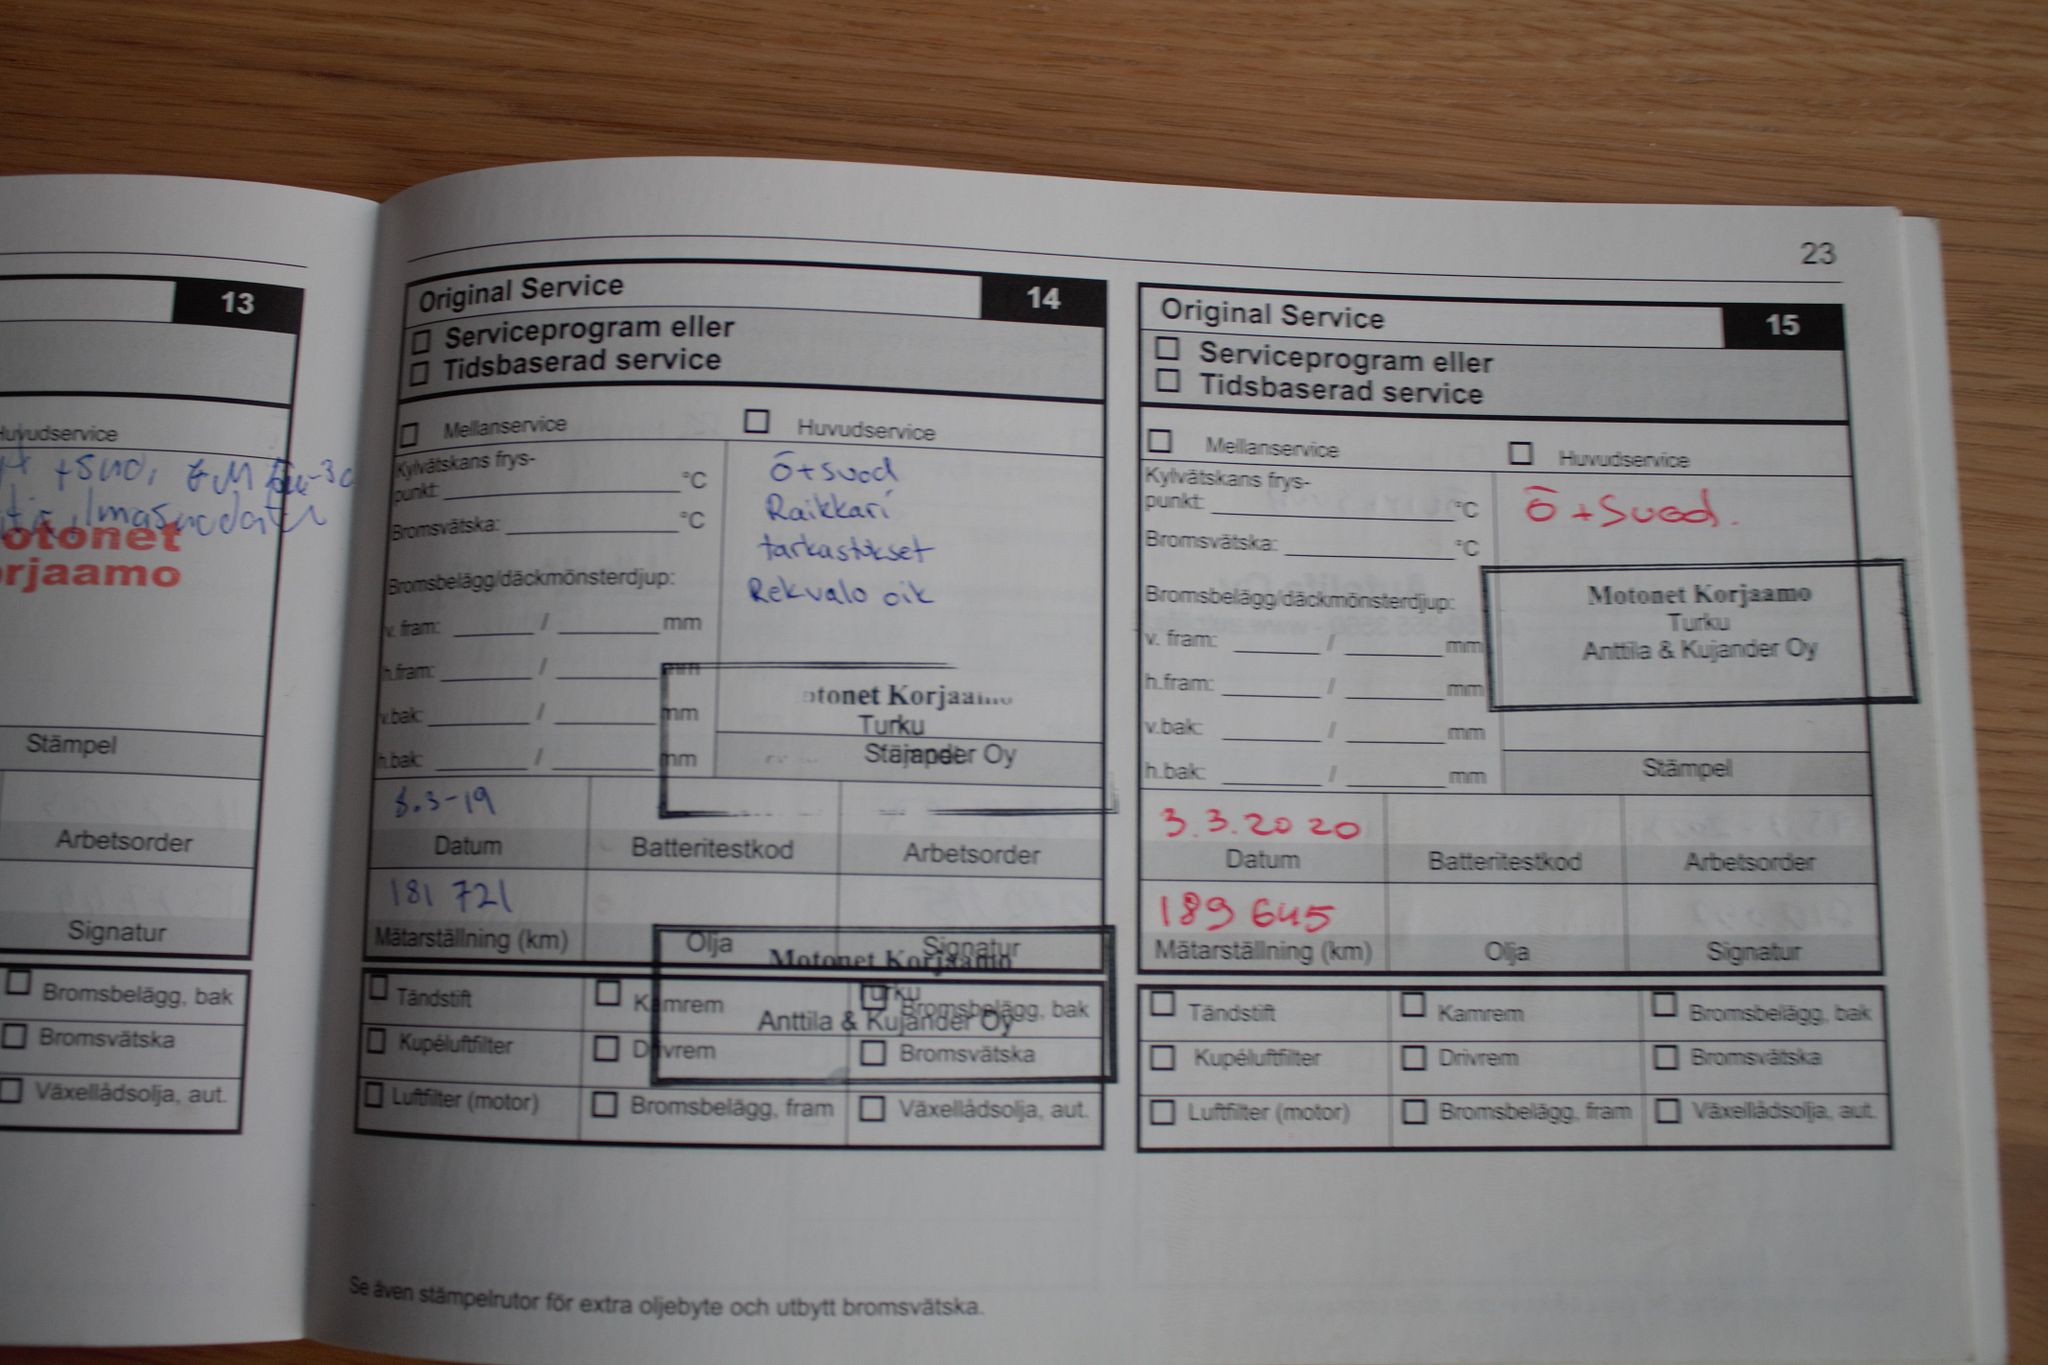 23
13
Huvudservice
+suo,
Ilmasuodatin
otonet
orjaamo
Stämpel
Arbetsorder
Signatur
Bromsbelägg, bak
Bromsvätska
Växellådsolja, aut.
Original Service 14
Serviceprogram eller
Tidsbaserad service
Mellanservice Huvudservice
Kylvätskans frys-
punkt: °C
Bromsvätska: °C
Ö+suod
Raikkari
tarkastukset
Rekvalo oik
Bromsbelägg/däckmönsterdjup:
v. fram: / mm
h.fram: / mm
v.bak: / mm
h.bak: / mm
otonet Korjaamo
Turku
jander Oy
Stämpel
8.3-19
Datum Batteritestkod Arbetsorder
181 721
Mätarställning (km) Olja Signatur
Motonet Korjaamo
Turku
Anttila & Kujander Oy
Tändstift Kamrem Bromsbelägg, bak
Kupéluftfilter Drivrem Bromsvätska
Luftfilter (motor) Bromsbelägg, fram Växellådsolja, aut.
Original Service 15
Serviceprogram eller
Tidsbaserad service
Mellanservice Huvudservice
Kylvätskans frys-
punkt: °C
Bromsvätska: °C
Ö+Suod.
Bromsbelägg/däckmönsterdjup:
v. fram: / mm
h.fram: / mm
v.bak: / mm
h.bak: / mm
Motonet Korjaamo
Turku
Anttila & Kujander Oy
Stämpel
3.3.2020
Datum Batteritestkod Arbetsorder
189 645
Mätarställning (km) Olja Signatur
Tändstift Kamrem Bromsbelägg, bak
Kupéluftfilter Drivrem Bromsvätska
Luftfilter (motor) Bromsbelägg, fram Växellådsolja, aut.
Se även stämpelrutor för extra oljebyte och utbytt bromsvätska.